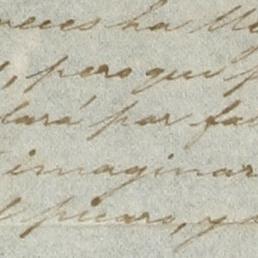 veces ha
, pero que
dará por fa
imaginar
pícaro, y